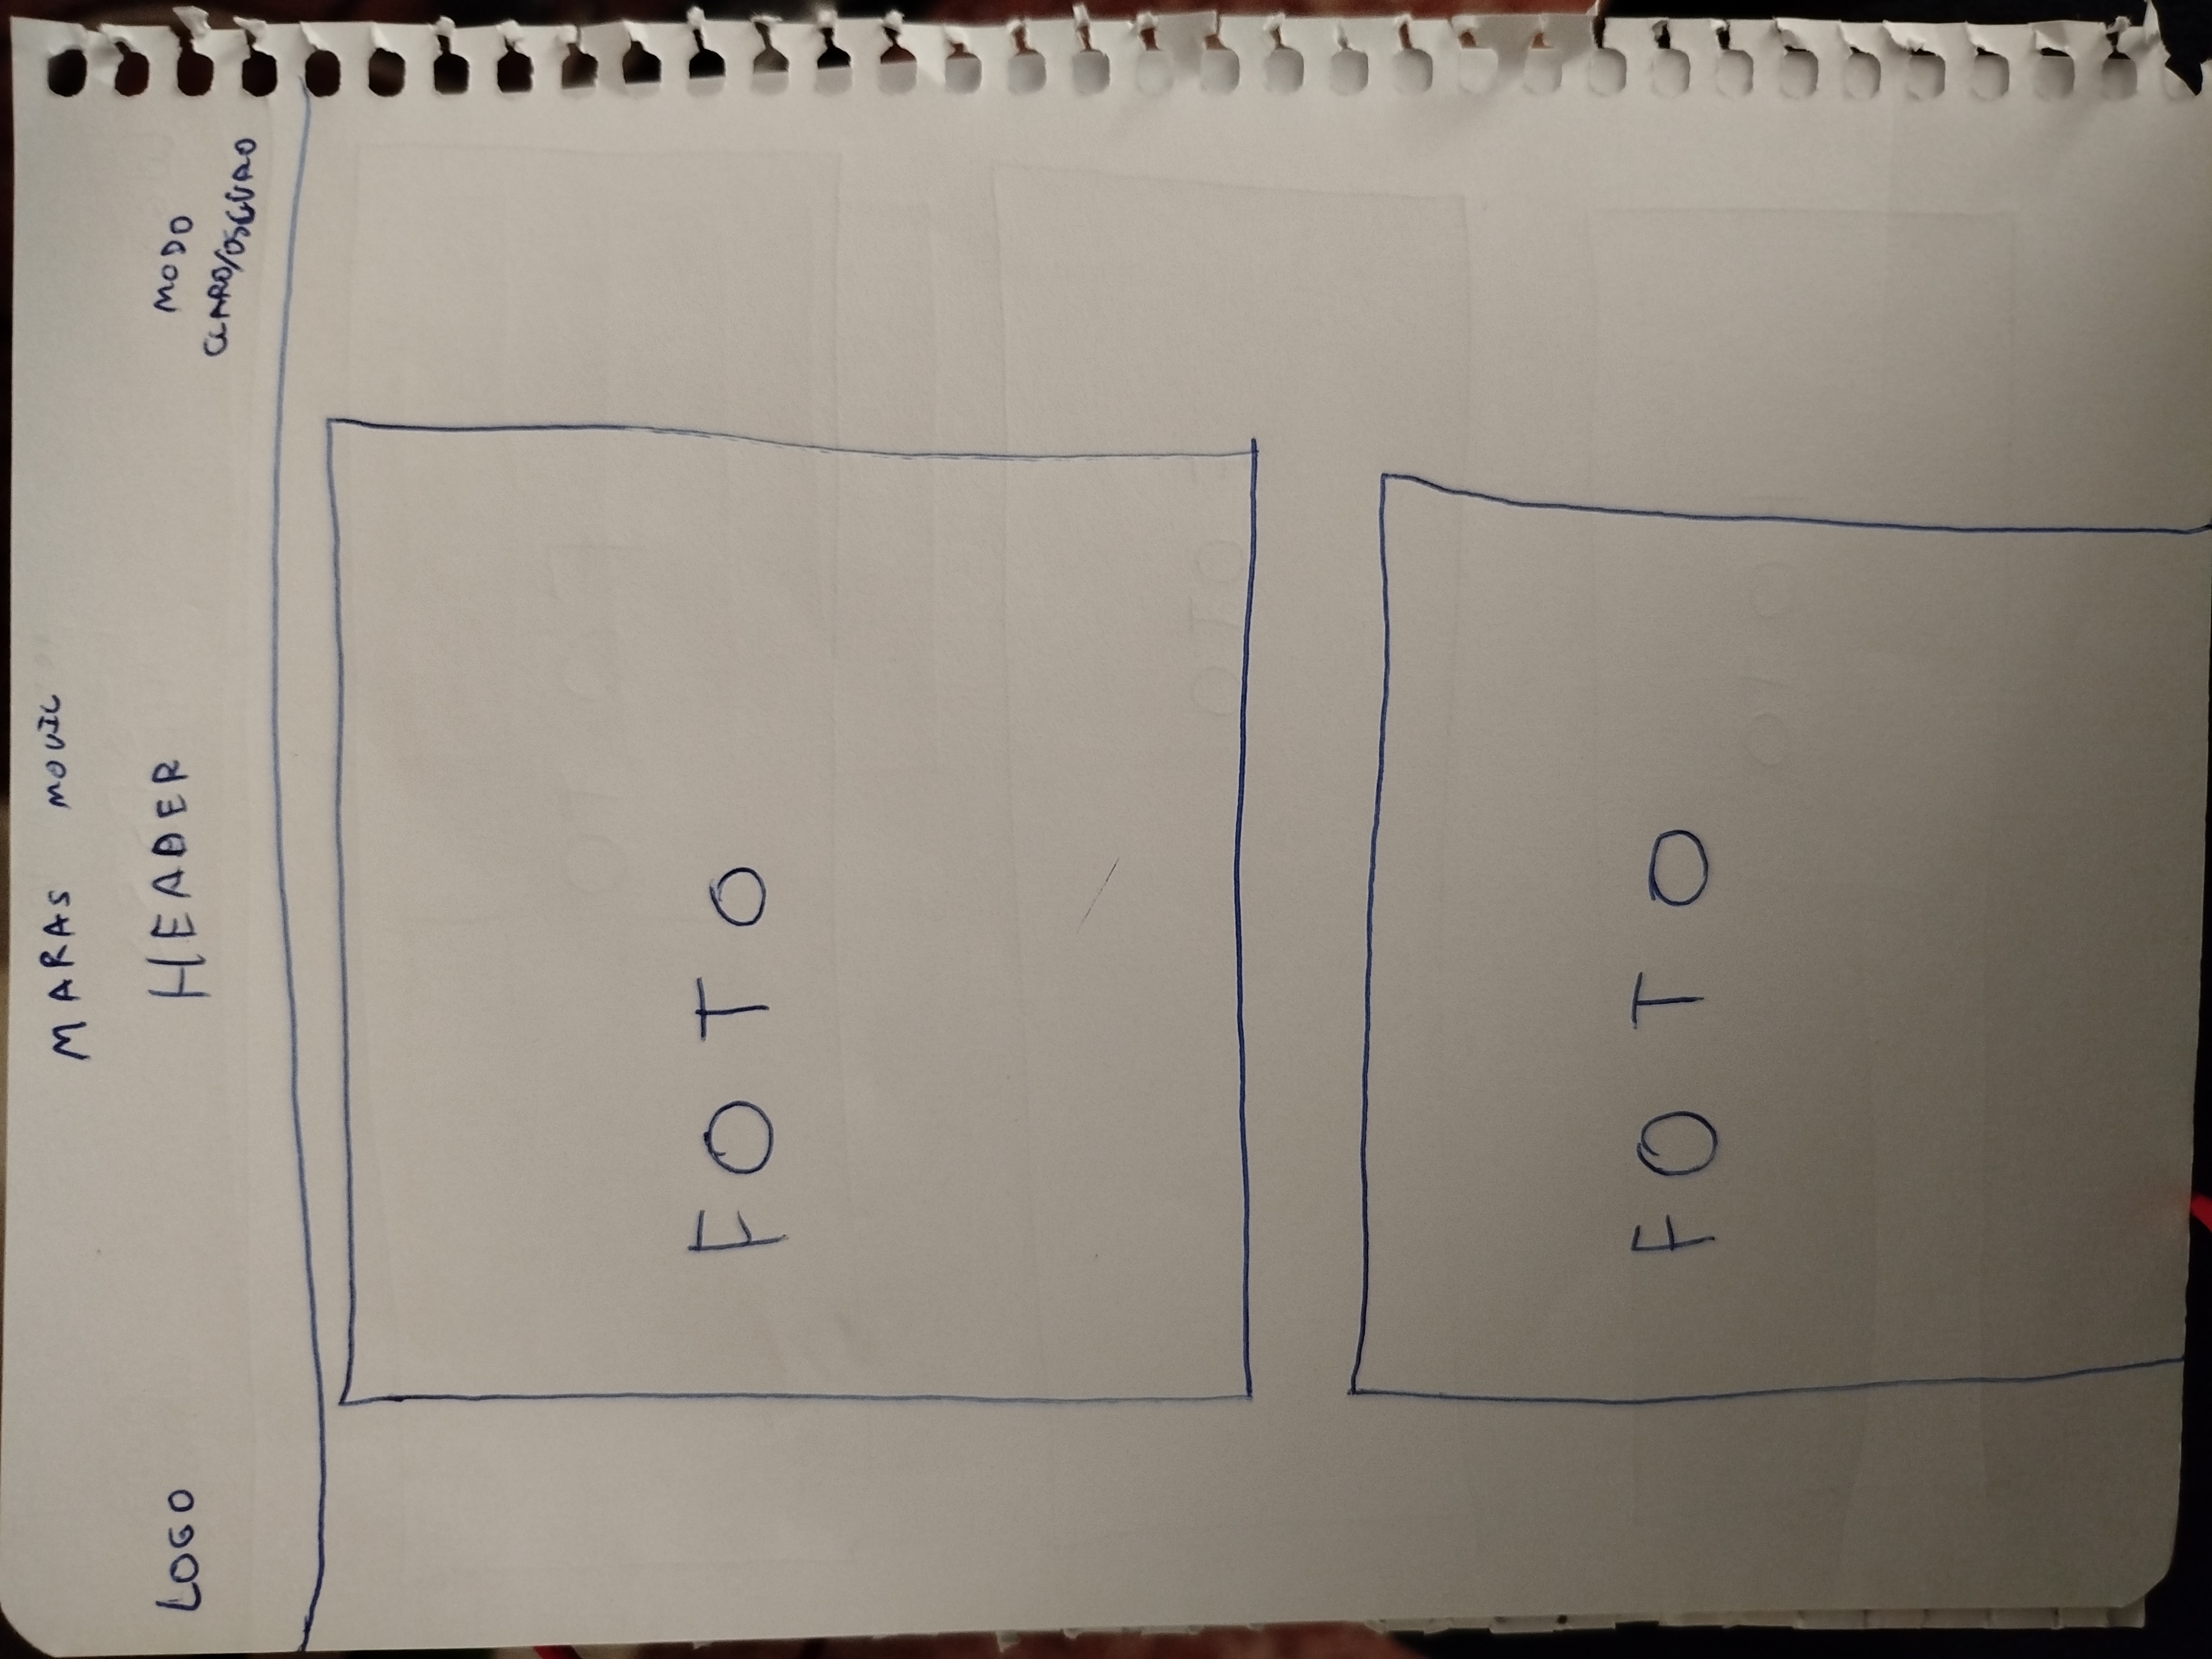 MARAS MOVIL
LOGO HEADER MODO
CLARO/OSCURO
FOTO
FOTO